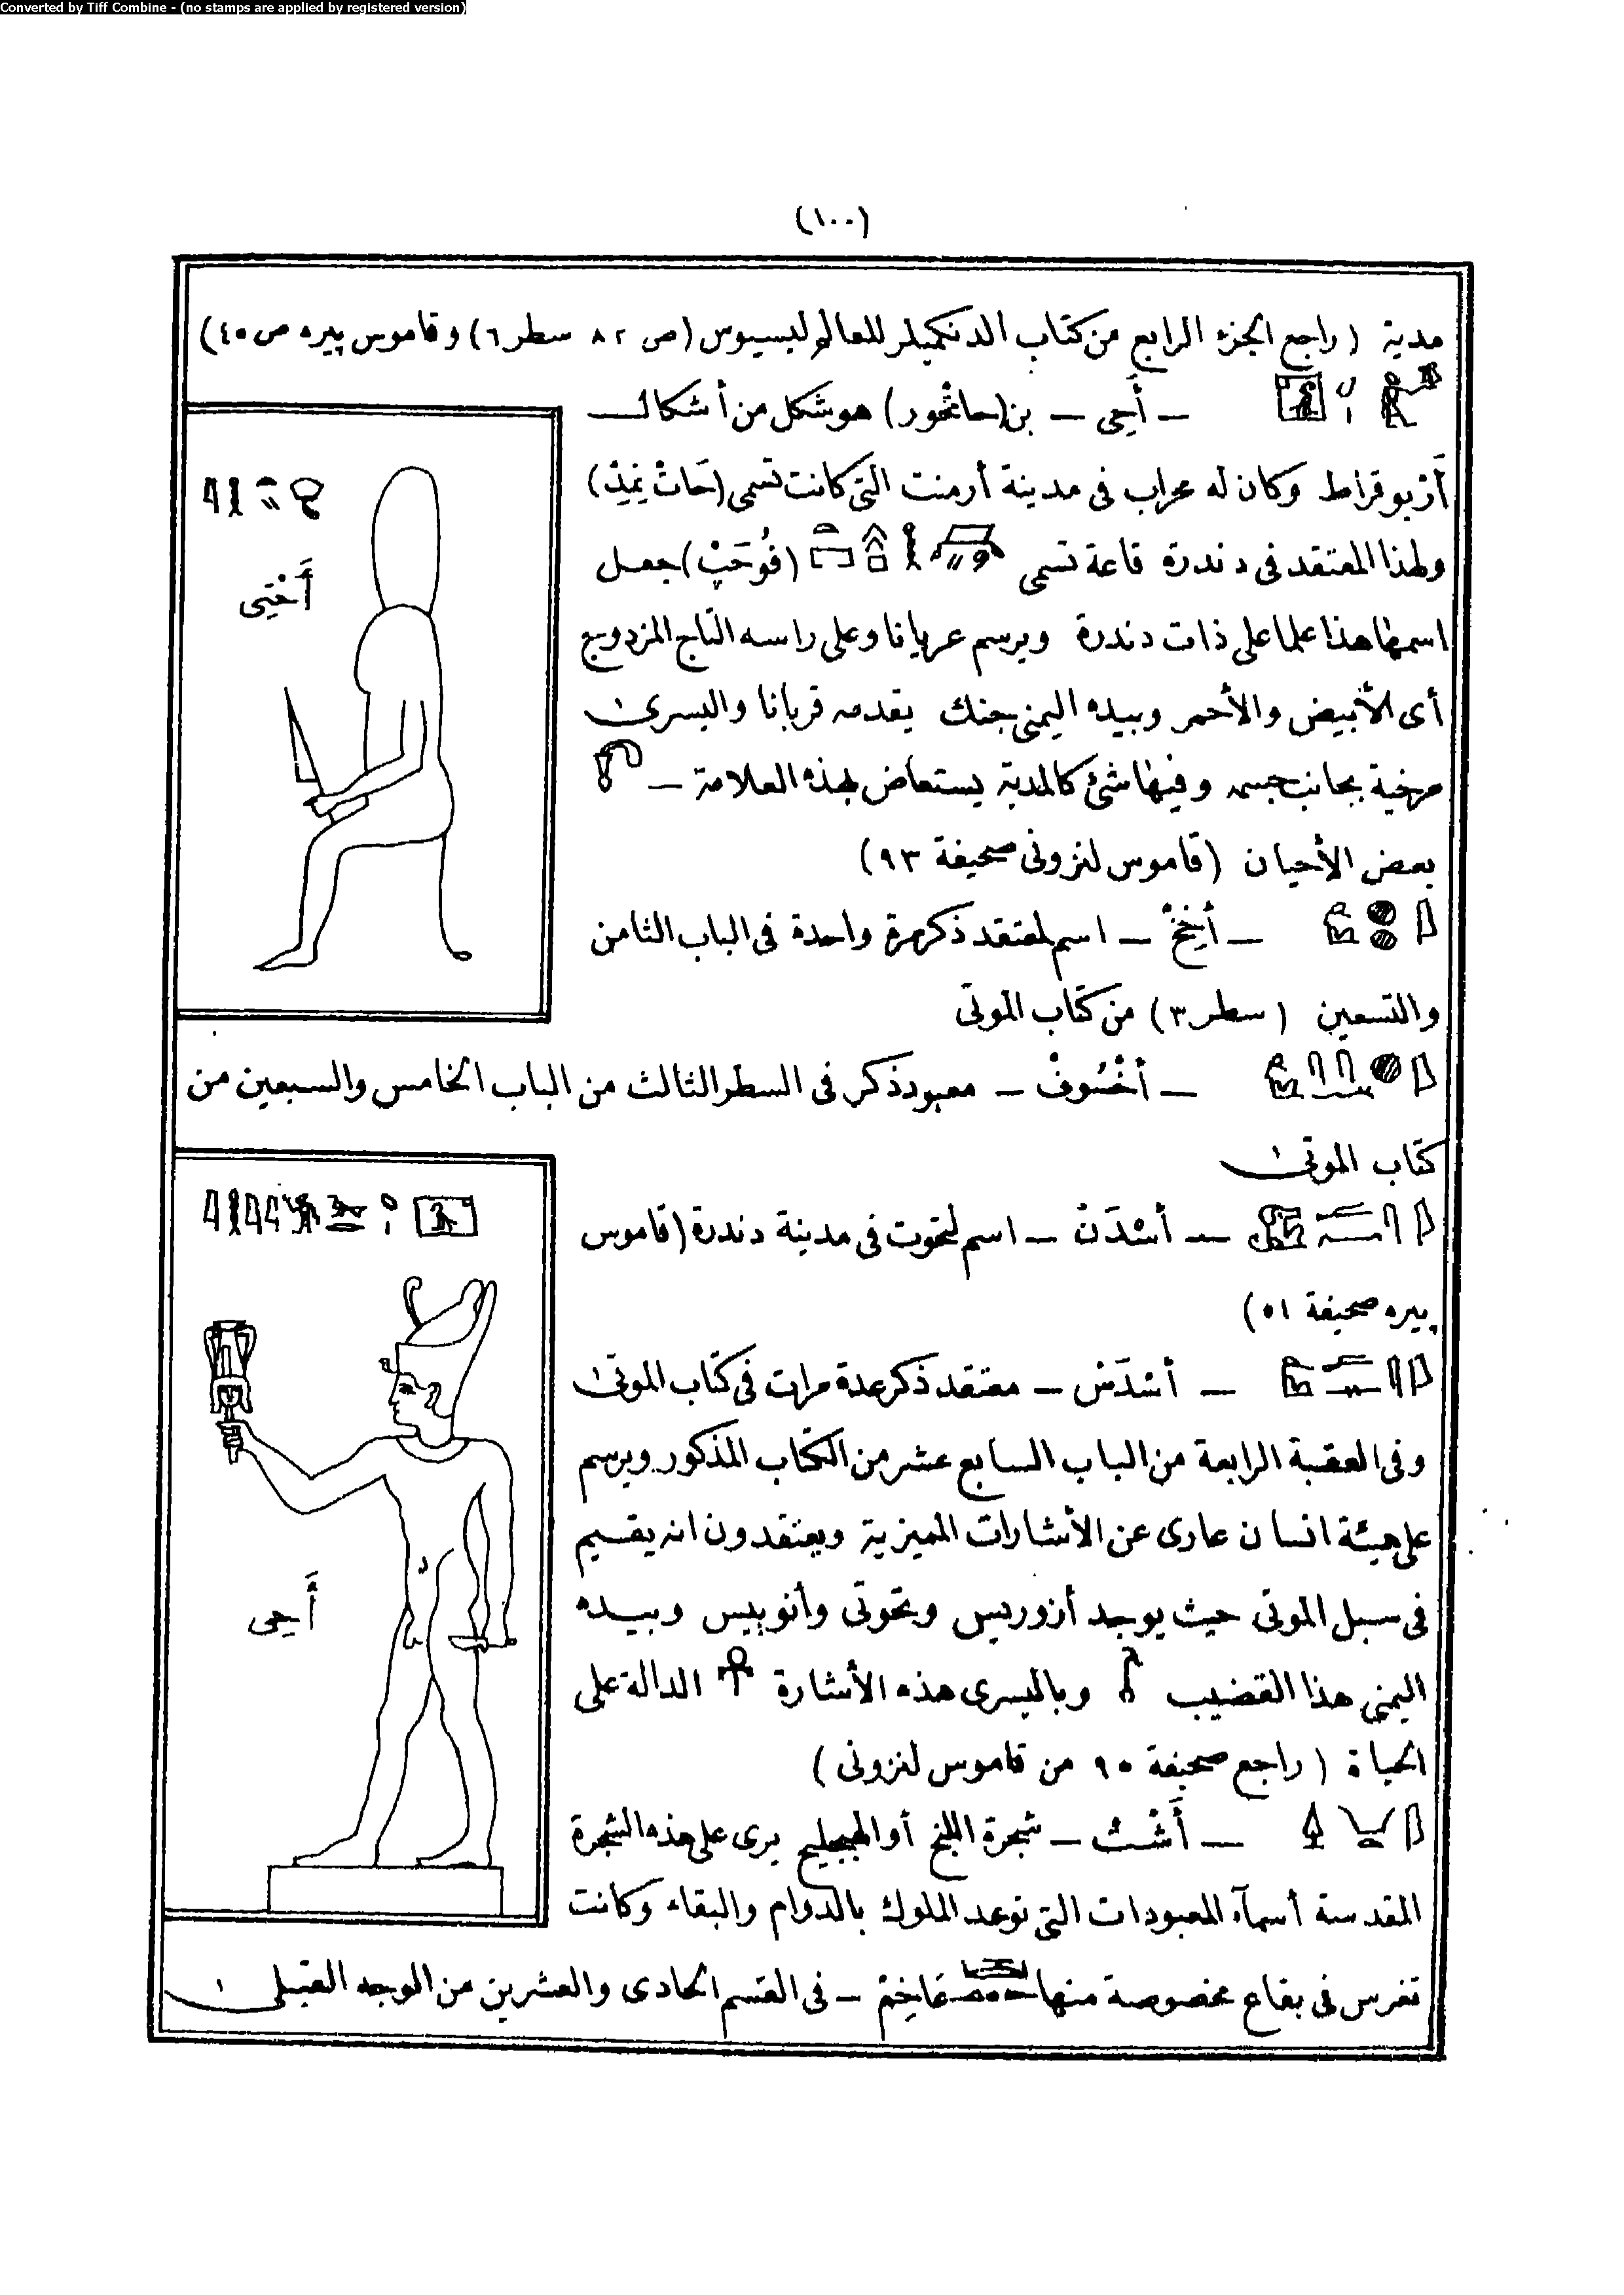 Converted by Tiff Combine - (no stamps are applied by registered version)
(١٠٠)
مدية (راجع الجزء الرابع من كتاب الدنكميلر للعالم ليسيوس (ص ٨٢ سطر ٦) وقاموس پيره ص ٤٠)
— أَحِى — بن (حاتحور) هو شكل من أشكال
أَرْبو قراط وكان له محراب فى مدينة أرمنت التى كانت تسمى (حَاتْ نِمِذْ)
ولهذا المعتقد فى دندرة قاعة تسمى (فُوحَپْ) جعل
اسمها هذا علما على ذات دندرة ويرسم عريانا وعلى راسه التاج المزدوج
أى الأبيض والأحمر وبيده اليمنى جنك يقدمه قربانا واليسرى
مرخية بجانب جسمه وفيها شئ كالمدية يستعاض بهذه العلامة —
بعض الأحيان (قاموس لنزونى صحيفة ٩٣)
— أَخِخْ — اسم لمعتقد ذكر مرة واحدة فى الباب الثامن
والتسعين (سطر ٣) من كتاب الموتى
— أخْسُوفْ — معبود ذكر فى السطر الثالث من الباب الخامس والسبعين من
كتاب الموتى
— أسْدَنْ — اسم لتحوت فى مدينة دندرة (قاموس
پيره صحيفة ٥١)
— أسْدَسْ — معتقد ذكر عدة مرات فى كتاب الموتى
وفى العقبة الرابعة من الباب السابع عشر من الكتاب المذكور ويرسم
على هيئة انسان عارى عن الأشارات المميزية ويعتقدون انه يقسيم
فى سبل الموتى حيث يوجد أزوريس وتحوتى وأنوبيس وبيده
اليمنى هذا القضيب وباليسرى هذه الأشارة الدالة على
الحياة (راجع صحيفة ٩٥ من قاموس لنزونى)
— أَشْتْ — شجرة اللبخ أو الهجليج يرى على هذه الشجرة
المقدسة أسمآء المعبودات التى توعد الملوك بالدوام والبقاء وكانت
تغرس فى بقاع مخصوصة منها عَاخِمْ — فى القسم الحادى والعشرين من الوجه القبلى
أَخْتِى
أَحِى